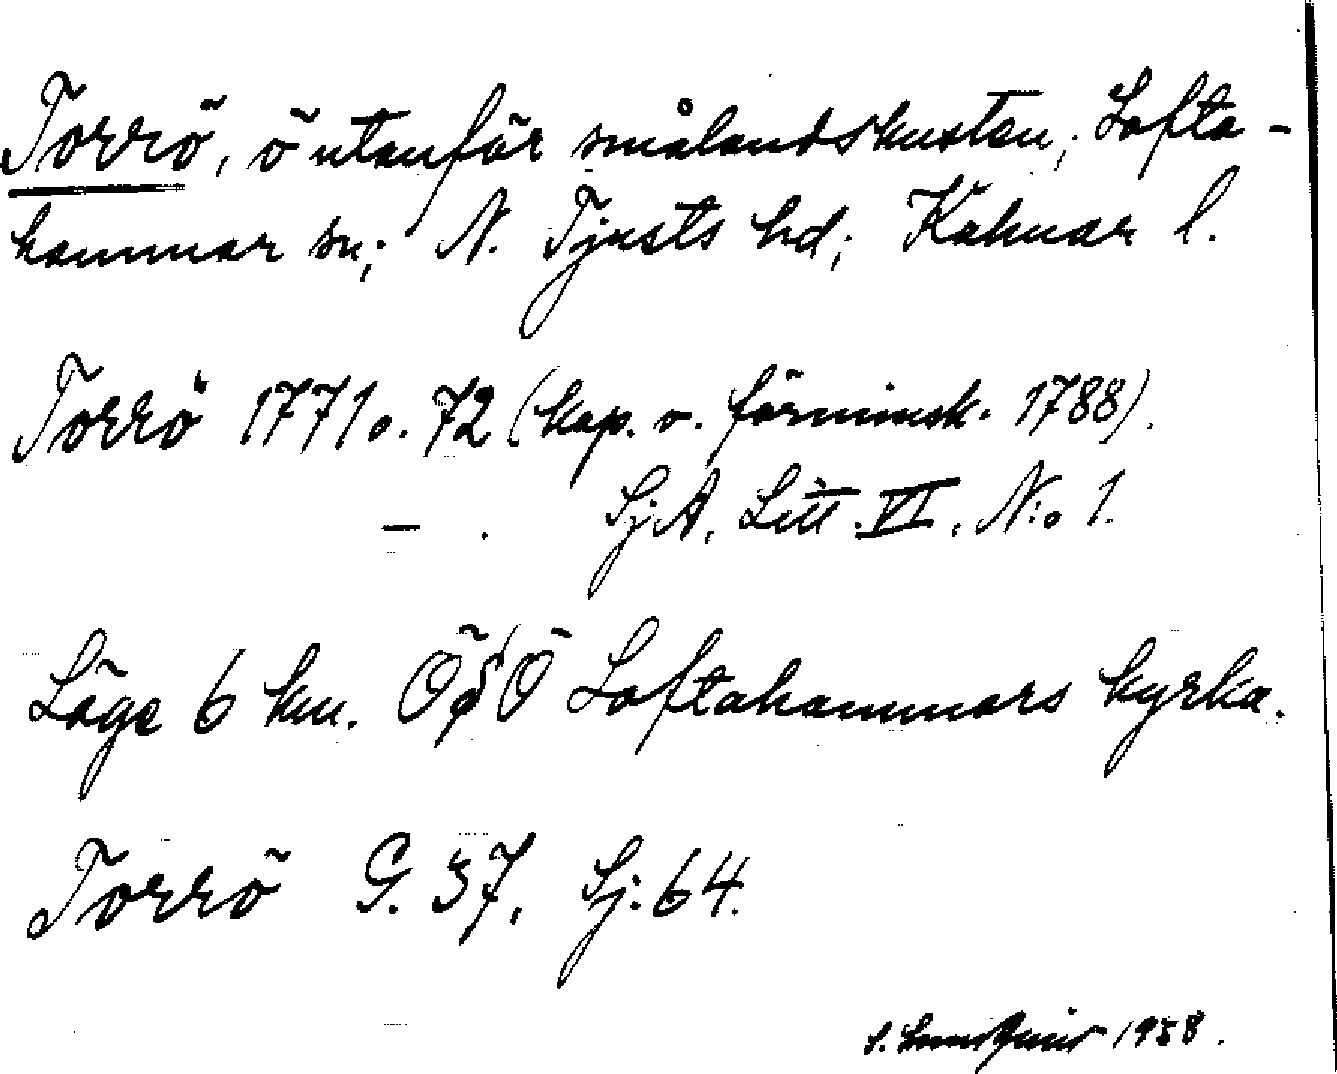 Torrö, ö utanför smålandskusten; Lofta-
hammar sn; N. Tjusts hd; Kalmar l.
Torrö 1771 o. 72 (kop. o. förminsk. 1788).
— . Sj.A. Litt. VI. N:o 1.
Läge 6 km. ÖSÖ Loftahammars kyrka.
Torrö G. 37, Sj. 64.
S. 1958.